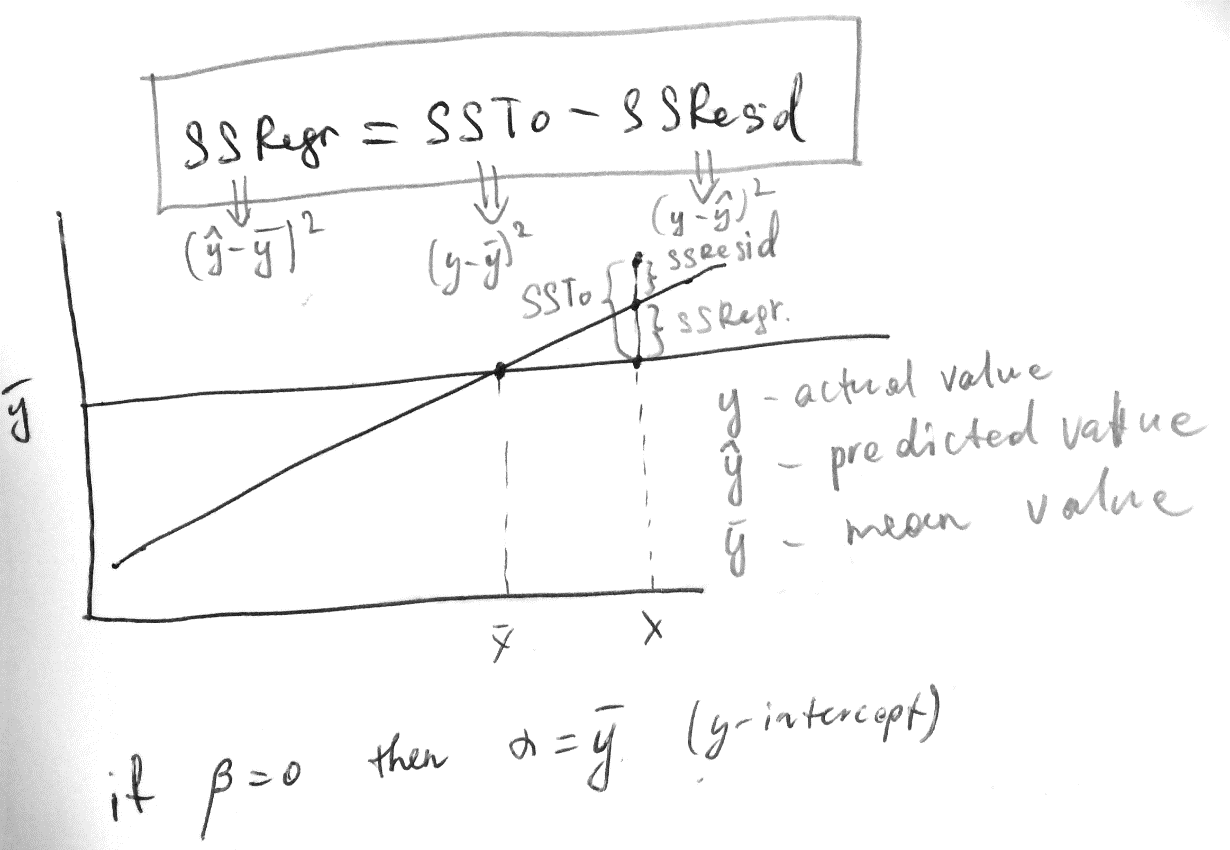 SSRegr = SSTo - SSResid
(ŷ-ȳ)²
(y-ȳ)²
(y-ŷ)²
SSResid
SSTo
SSRegr.
ȳ
y - actual value
ŷ - predicted value
ȳ - mean value
x̄
x
if β=0 then α=ȳ (y-intercept)